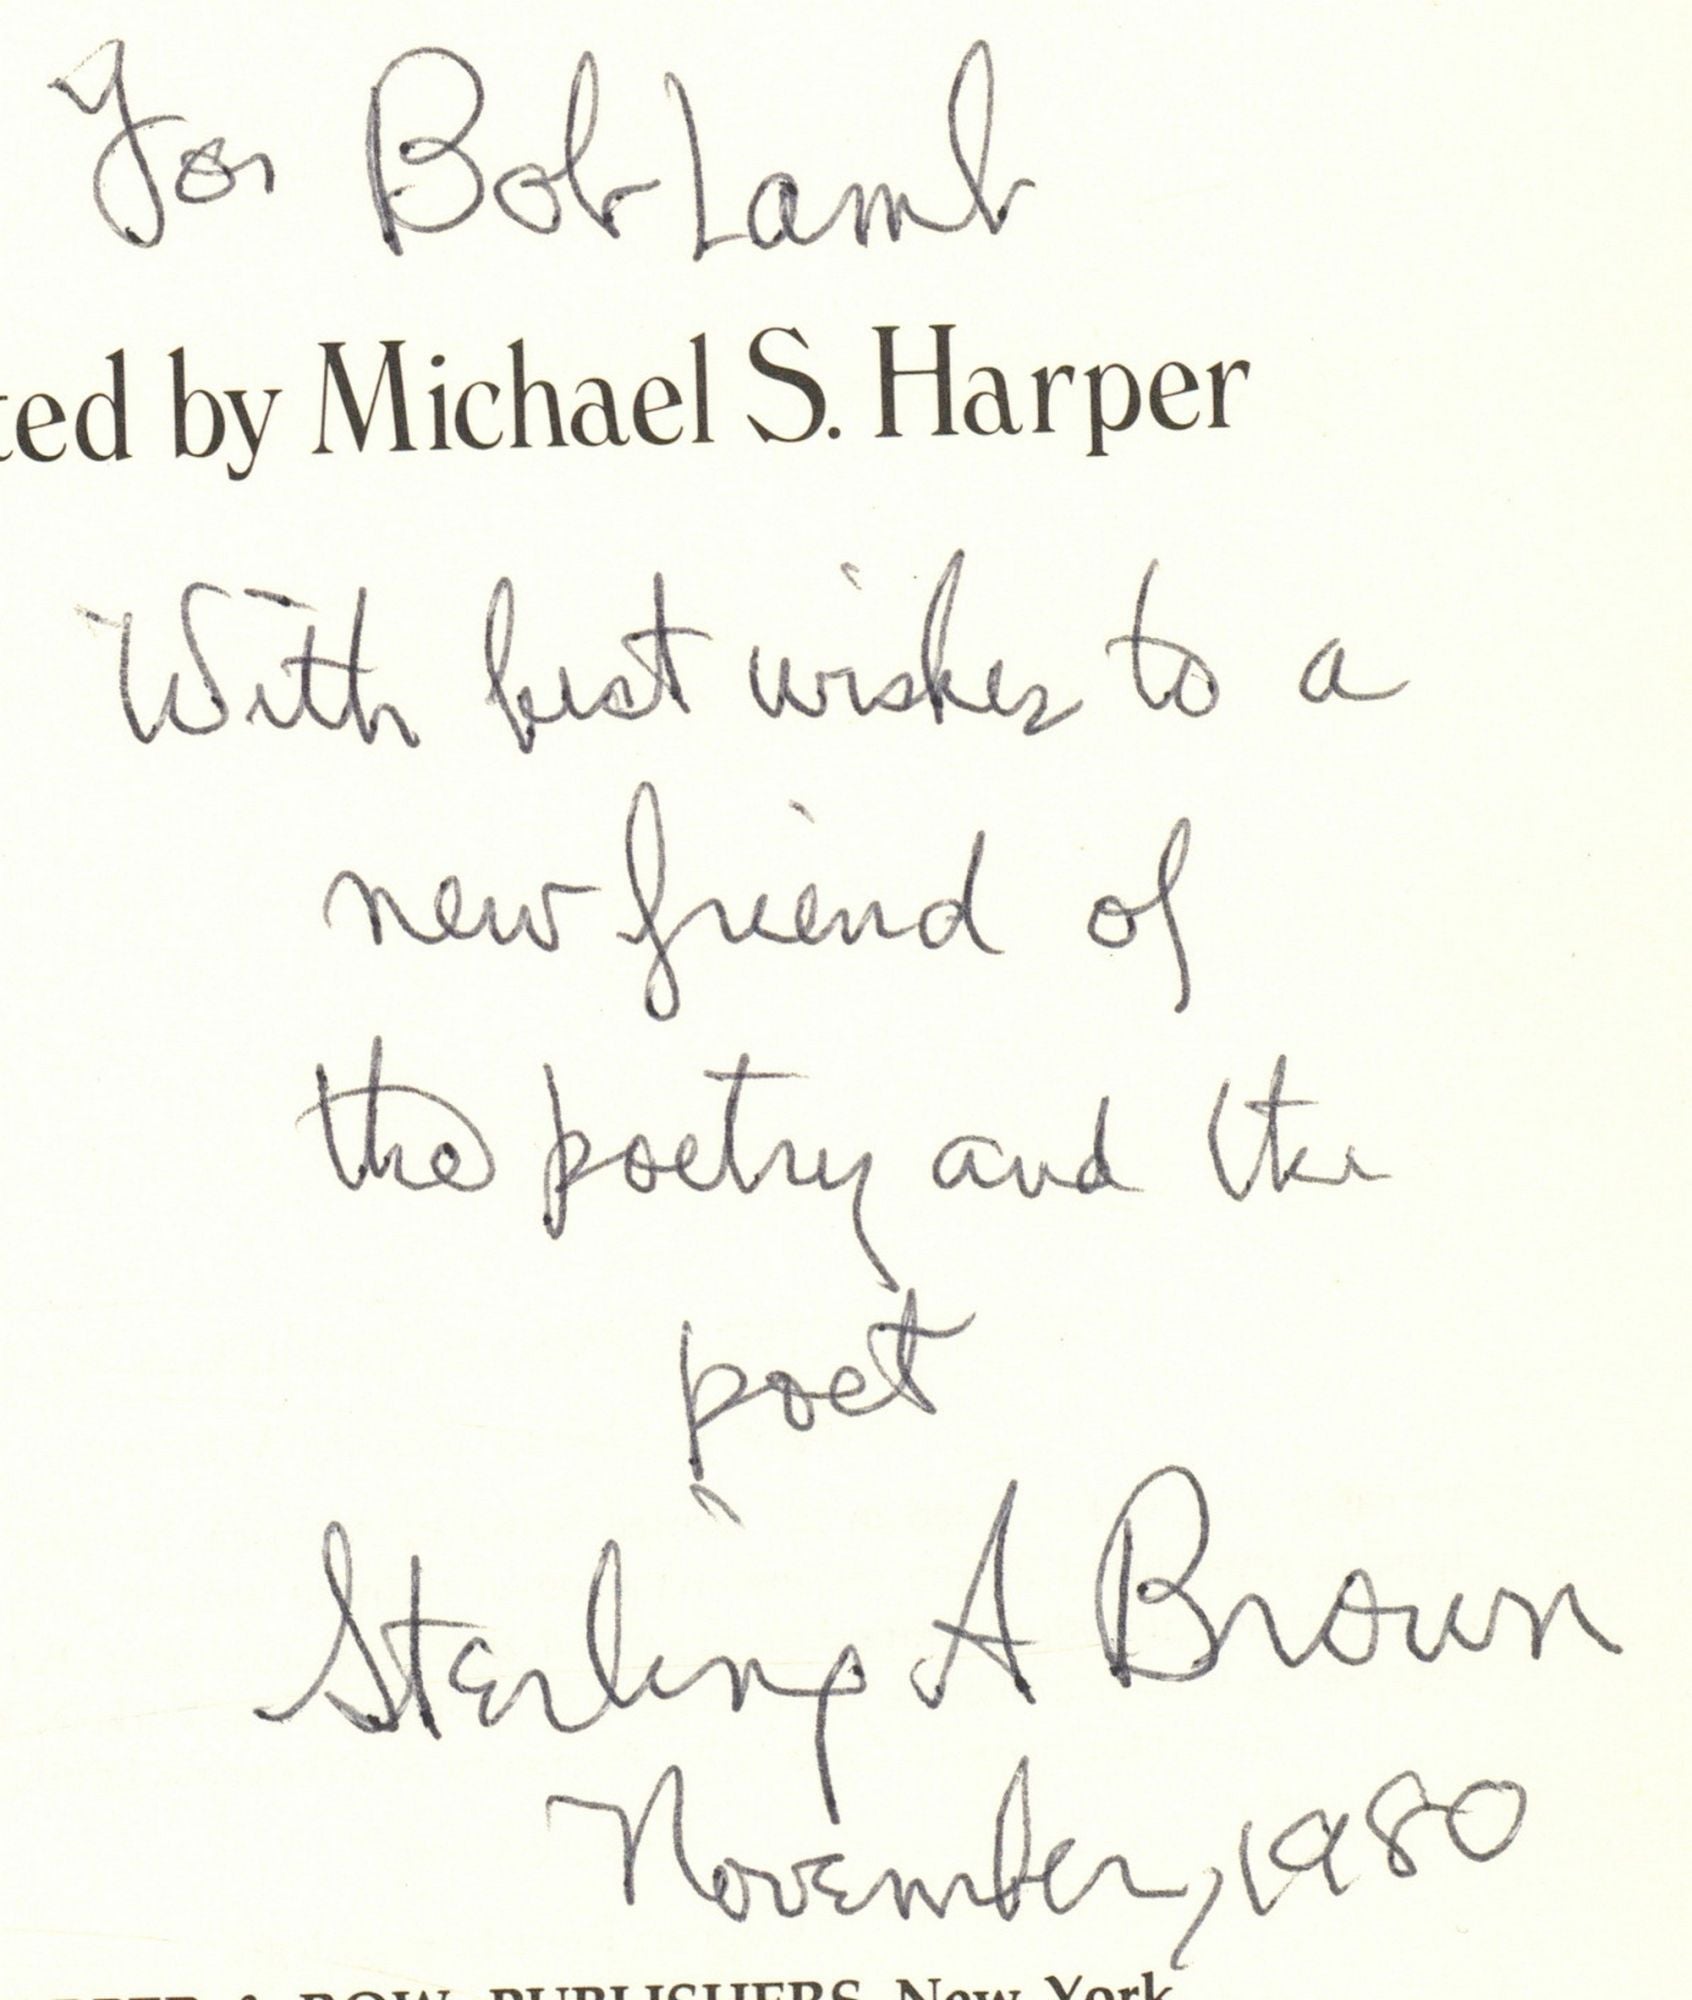 For Bob Lamb
ted by Michael S. Harper
With best wishes to a
new friend of
the poetry and the
poet
Sterling A Brown
November, 1980
ROW, PUBLISHERS, New York